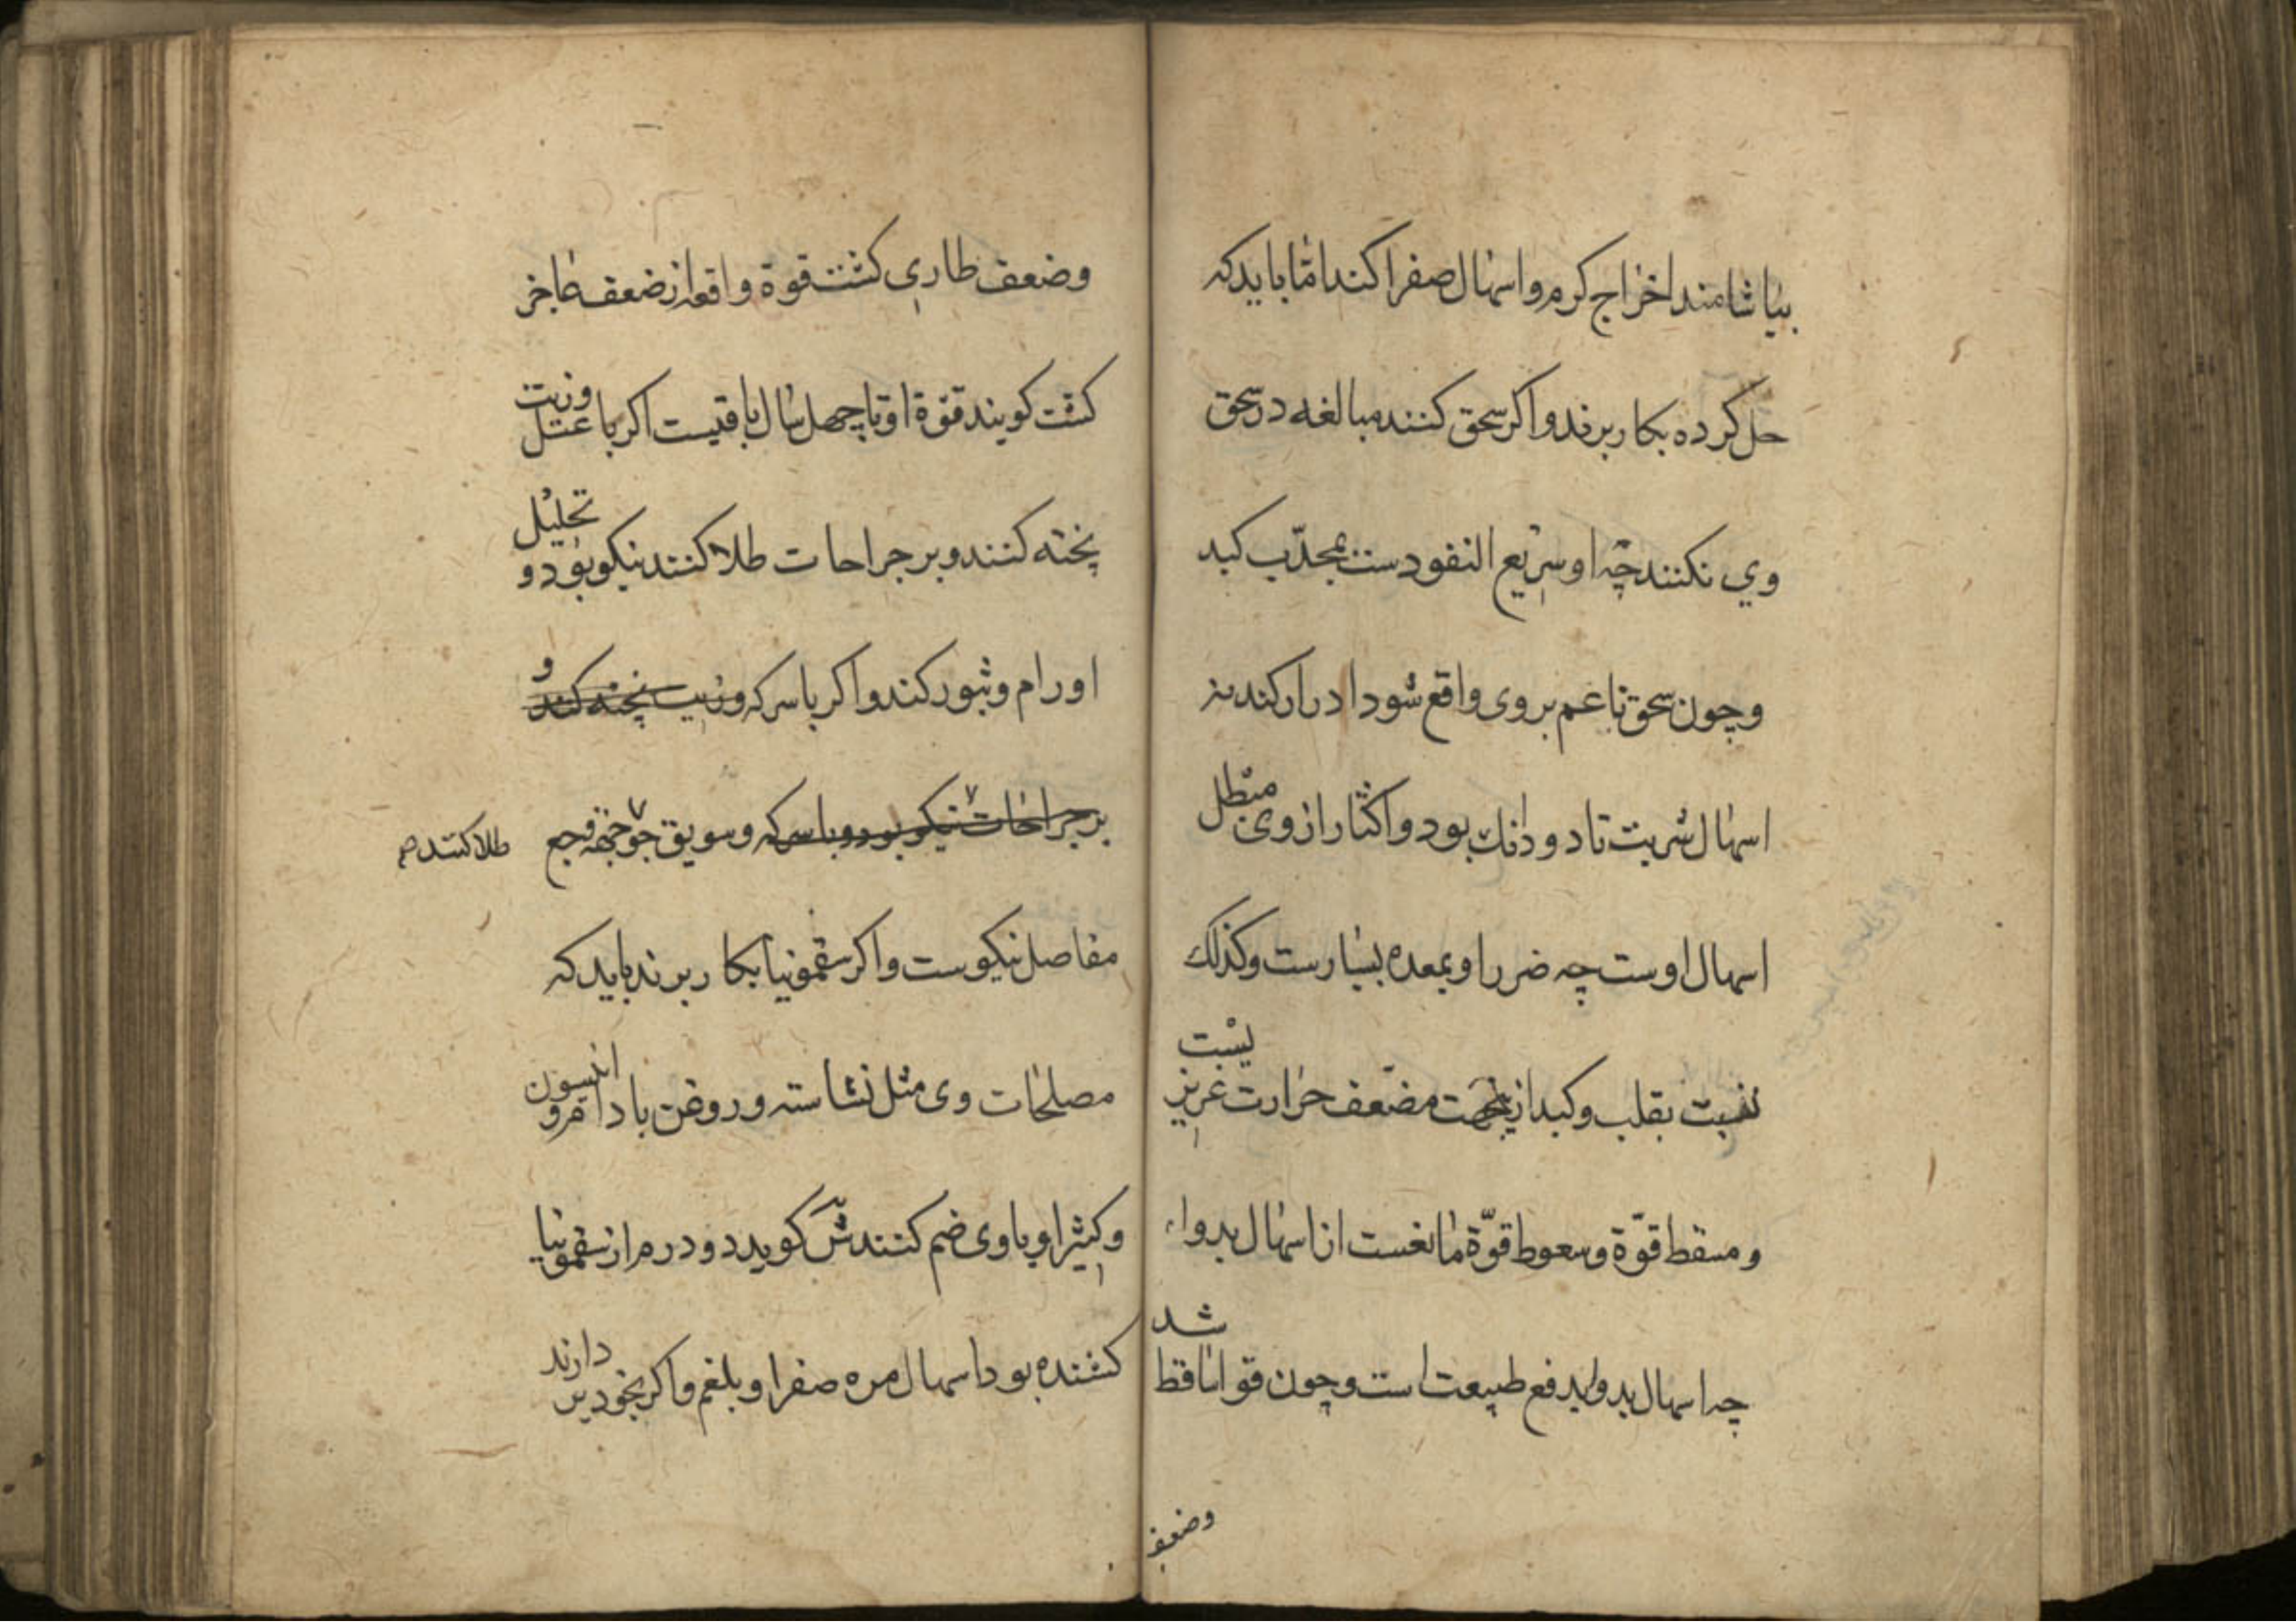 بیاشامند اخراج کرم و اسهال صفرا کند اما باید که
حل کرده بکار برند و اکر سحق کنند مبالغه در سحق
وی نکنند چه او سریع النفودست بمجدّب کبد
و چون سحق ناعم بر وی واقع شود ادرار کند نه
اسهال شربت تا دو دانك بود و اکثار از وی مبطل
اسهال اوست چه ضرر او بمعده بسیارست و کذلك
نسبت بقلب و کبد ازینجهت مضعف حرارت غریز
یست
و مسقط قوّة و سعوط قوّة مانغست از اسهال بدواء
چه اسهال بدوا بدفع طبیعت است و چون قوا ساقط
شد
وضعف
وضعف طاری کشت قوة واقعه از ضعف عاجز
کشت کویند قوّة او تا چهل سال باقیست اکر با عسل
و زیت
پخته کنند و بر جراحات طلا کنند نیکو بود و
تحلیل
اورام و بثور کند و اکر با سرکه و زیت پخته کنند و
بر جراحات نیکو بود و با سرکه و سویق جو جهة وجع
طلا کنند
مفاصل نیکوست و اکر سقمونیا بکار برند باید که
مصلحات وی مثل نشاسته و روغن بادام و
انیسون
و کثیرا و با وی ضم کنند کوید دو درم از سقمونیا
کشنده بود اسهال مره صفرا و بلغم و اکر بخود بر
دارند